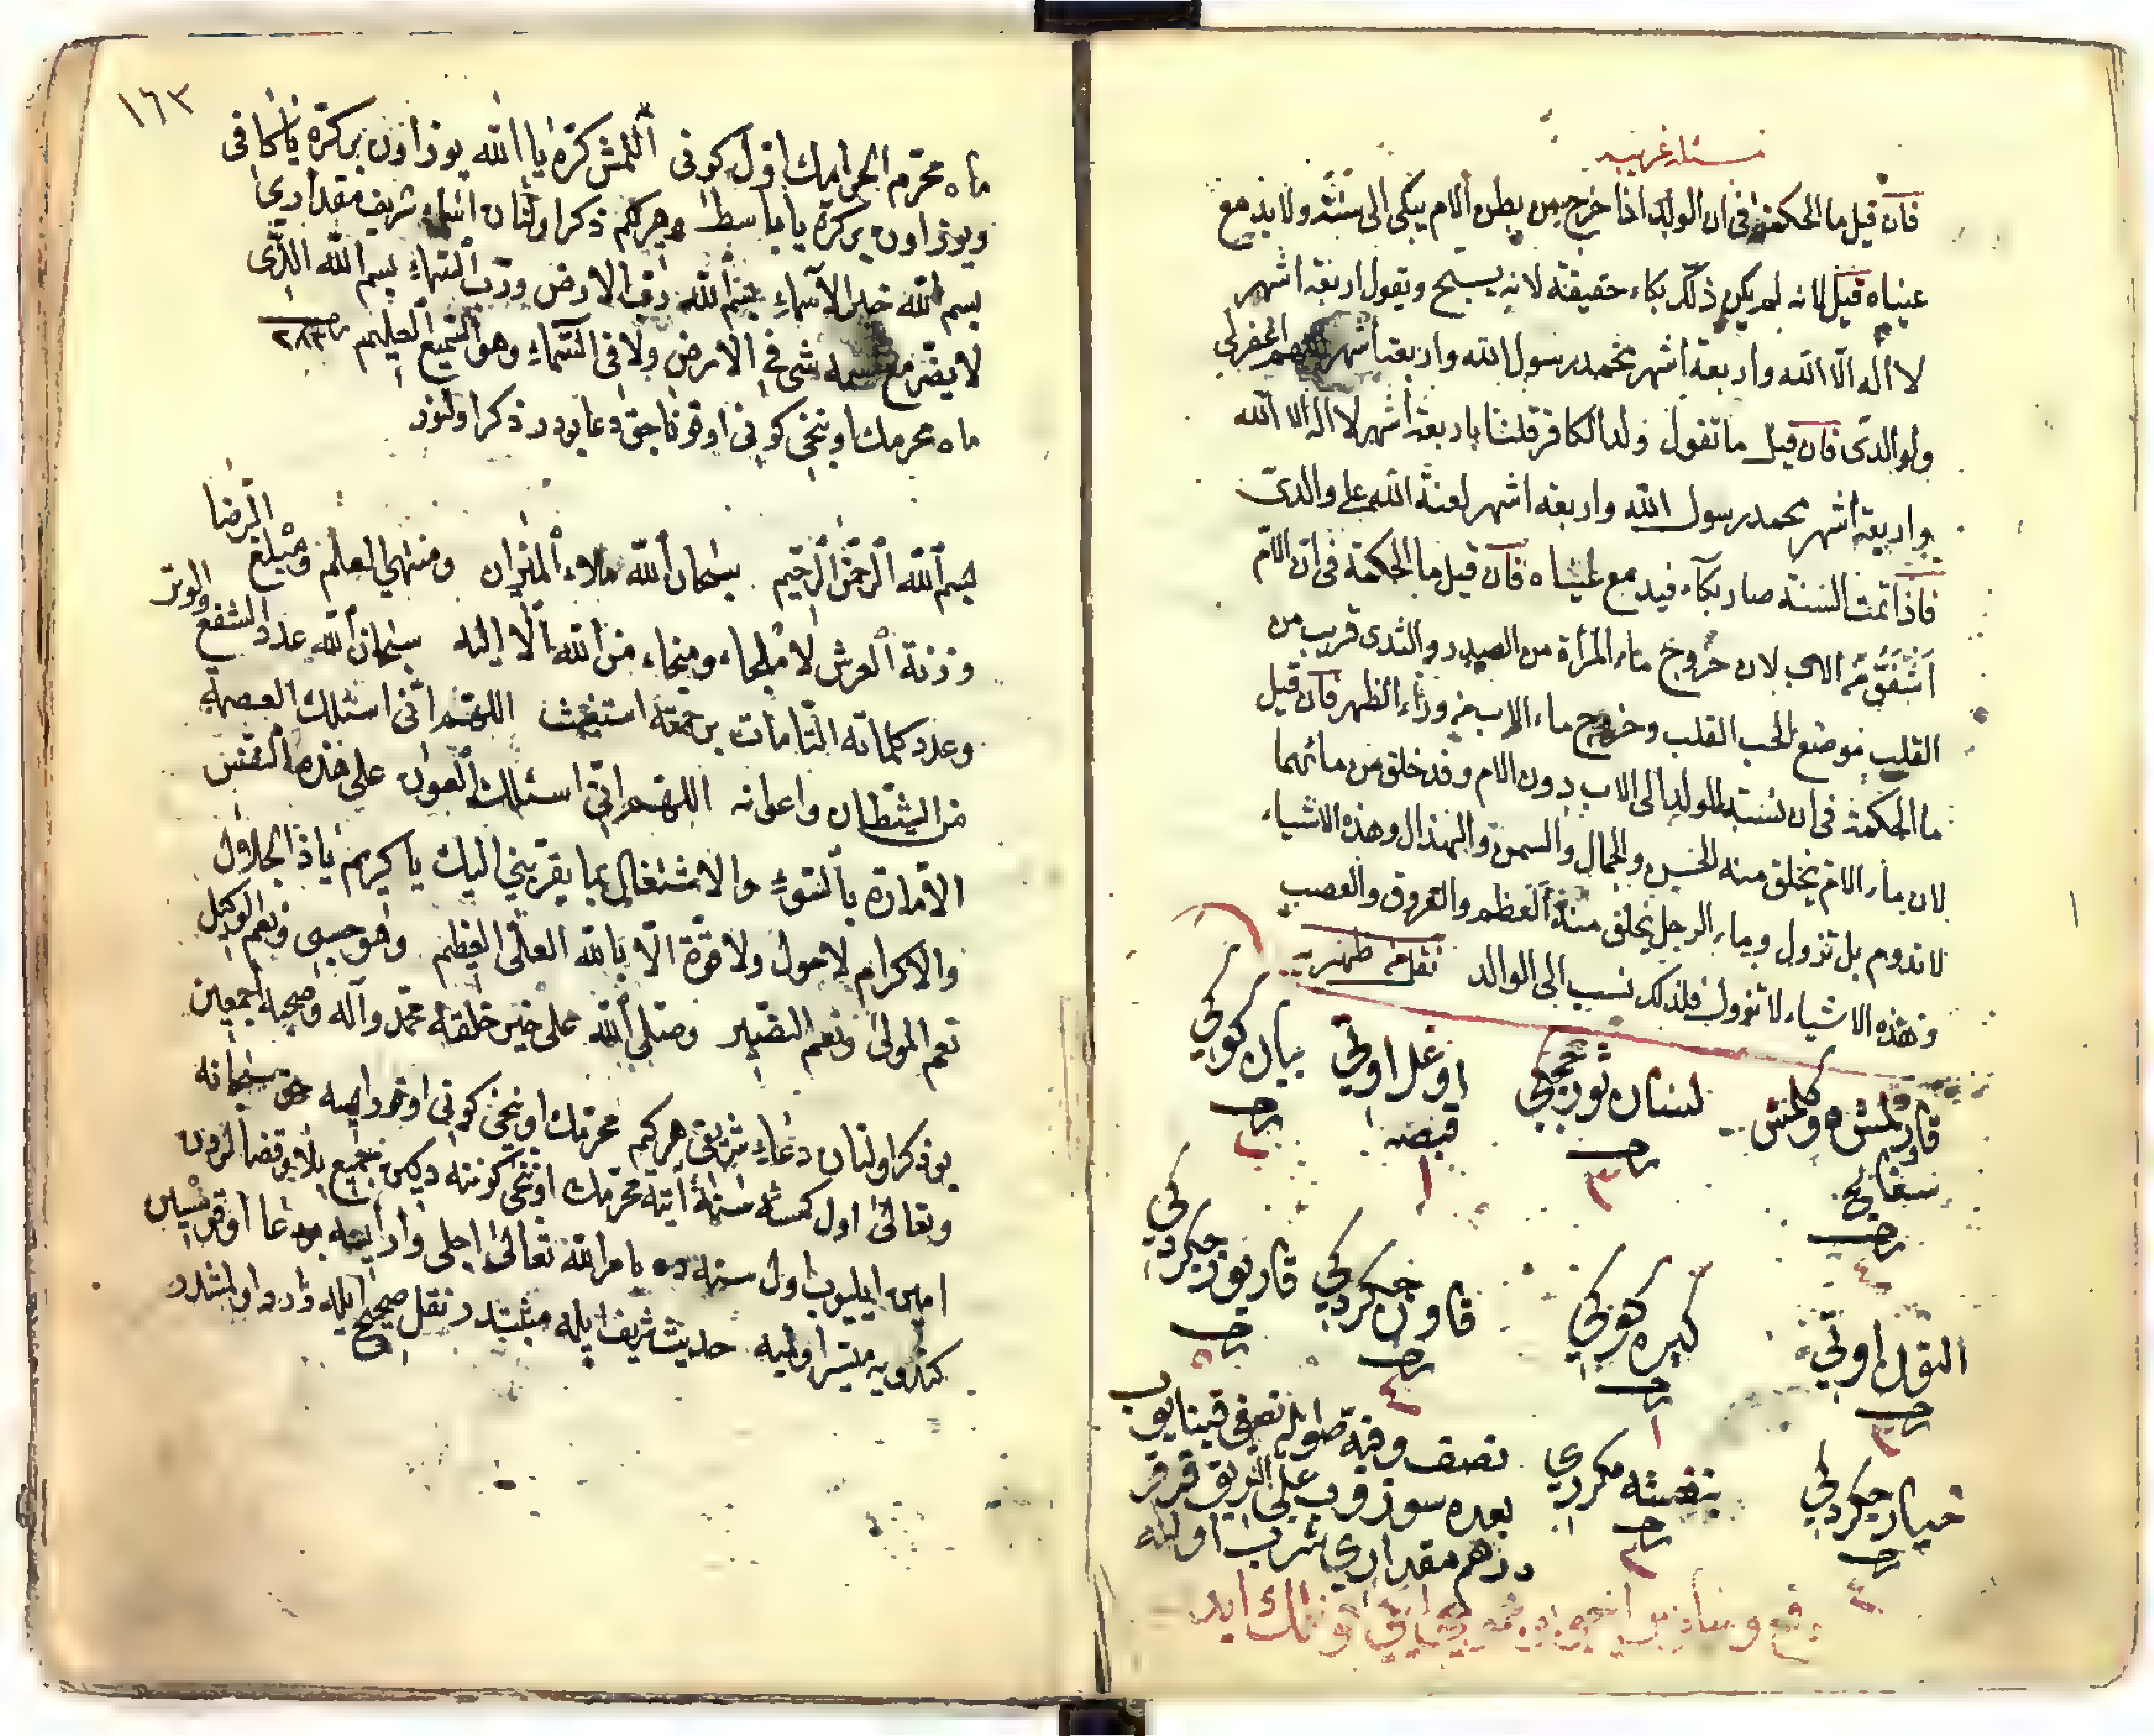 مسئله غريبه
فان قيل ما الحكمة فى ان الولد اذا خرج من بطن الام يبكى الى سنة ولا يدمع
عيناه قيل لانه لم يكن ذلك بكاء حقيقة لانه يسبح ويقول اربعة اشهر
لا اله الا الله واربعة اشهر محمد رسول الله واربعة اشهر اللهم اغفرلى
ولوالدى فان قيل ما تقول ولد الكافر قلنا باربعة اشهر لا اله الا الله
واربعة اشهر محمد رسول الله واربعة اشهر لعنة الله على والدى
فاذا تمت السنة صار بكاء فيدمع عيناه فان قيل ما الحكمة فى ان الام
اشفق من الاب لان خروج ماء المرأة من الصدر والثدى قريب من
القلب موضع الحب القلب وخروج ماء الاب من وراء الظهر فان قيل
ما الحكمة فى ان نسبة الولد الى الاب دون الام وقد خلق من مائهما
لان ماء الام يخلق منه الحسن والجمال والسمن والهزال وهذه الاشياء
لا تدوم بل تزول وماء الرجل يخلق منه العظم والعروق والعصب
وهذه الاشياء لا تزول فلذلك نسب الى الوالد نقل من ظهيريه
لسان ثور اوغل اوتى قبضه ١ بيان كوكى
٣
التون اوتى كبره كوكى قاون چكردكى قارپوز چكردكى
خيار چكردكى
نصف وقيه صو ايله نصفى قينايوب
بعده سوزوب على الريق قرقر
درهم مقدارى شرب اولنه
١٦٣
ماه محرم الحرامك اول كونى اللمش كره يا الله يوز اون بر كره يا كافى
ويوز اون بر كره يا باسط وهركم ذكر اولنان اسماء شريف مقدارى
بسم الله خير الاسماء بسم الله رب الارض ورب السماء بسم الله الذى
لا يضر مع اسمه شئ فى الارض ولا فى السماء وهو السميع العليم
ماه محرمك اوننجى كونى اوقوناجق دعا بودر ذكر اولنور
بسم الله الرحمن الرحيم سبحان الله ملاء الميزان ومنتهى العلم ومبلغ الرضا
وزنة العرش لا ملجاء ومنجاء من الله الا اليه سبحان الله عدد الشفع والوتر
وعدد كلماته التامات برحمته استغيث اللهم انى اسئلك العصمة
من الشيطان واعوانه اللهم انى اسئلك العون على هذه النفس
الامارة بالسوء والاشتغال بما يقربنى اليك يا كريم يا ذا الجلال
والاكرام لا حول ولا قوة الا بالله العلى العظيم وهو حسبى ونعم الوكيل
نعم المولى ونعم النصير وصلى الله على خير خلقه محمد وآله وصحبه اجمعين
بو ذكر اولنان دعاء شريفى هركم محرمك اوننجى كونى اوقور ايسه حق سبحانه
وتعالى اول كمسه سنه آتيه محرمك اوننجى كوننه دكين جميع بلا وقضالردن
امين ايليوب اول سنه ده بامر الله تعالى اجلى وار ايسه بو دعا اوقومسى
كندويه ميسر اولميه حديث شريف ايله مثبتدر نقل صحيح ايله وارد اولمشدر